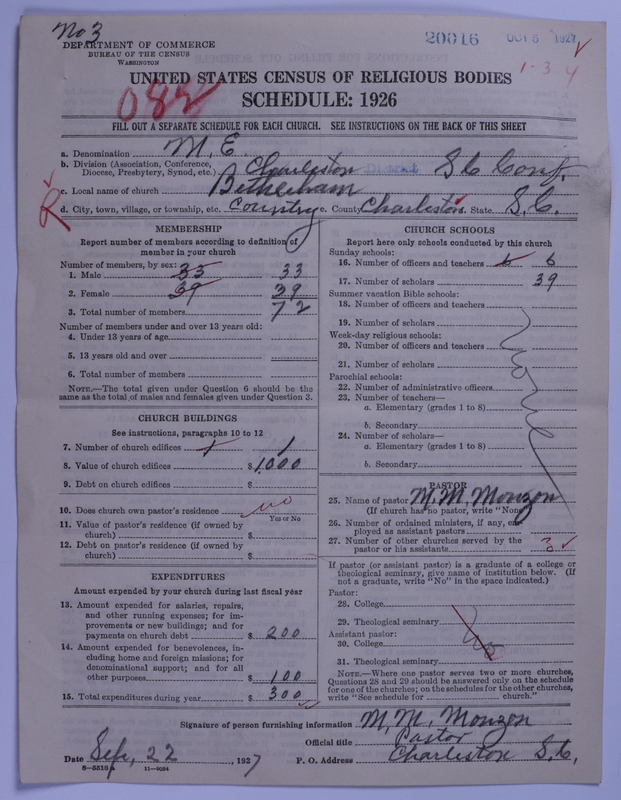 No 3
20016 OCT 5 1927
DEPARTMENT OF COMMERCE
BUREAU OF THE CENSUS
WASHINGTON
1-3-4
UNITED STATES CENSUS OF RELIGIOUS BODIES
088 SCHEDULE: 1926
FILL OUT A SEPARATE SCHEDULE FOR EACH CHURCH. SEE INSTRUCTIONS ON THE BACK OF THIS SHEET
a. Denomination M. E.
b. Division (Association, Conference, Diocese, Presbytery, Synod, etc.) Charleston S C Conf.
c. Local name of church
d. City, town, village, or township, etc. Country e. County Charleston State S. C.
MEMBERSHIP
Report number of members according to definition of
member in your church
Number of members, by sex:
1. Male 33 33
2. Female 39 39
3. Total number of members 72
Number of members under and over 13 years old:
4. Under 13 years of age
5. 13 years old and over
6. Total number of members
NOTE.—The total given under Question 6 should be the
same as the total of males and females given under Question 3.
CHURCH BUILDINGS
See instructions, paragraphs 10 to 12
7. Number of church edifices 1 1
8. Value of church edifices $1,000
9. Debt on church edifices $
10. Does church own pastor's residence no
Yes or No
11. Value of pastor's residence (if owned by
church) $
12. Debt on pastor's residence (if owned by
church) $
EXPENDITURES
Amount expended by your church during last fiscal year
13. Amount expended for salaries, repairs,
and other running expenses; for im-
provements or new buildings; and for
payments on church debt $ 200
14. Amount expended for benevolences, in-
cluding home and foreign missions; for
denominational support; and for all
other purposes $ 100
15. Total expenditures during year $ 300
CHURCH SCHOOLS
Report here only schools conducted by this church
Sunday schools:
16. Number of officers and teachers 6 6
17. Number of scholars 39
Summer vacation Bible schools:
18. Number of officers and teachers
19. Number of scholars
Week-day religious schools:
20. Number of officers and teachers
21. Number of scholars
Parochial schools:
22. Number of administrative officers
23. Number of teachers—
a. Elementary (grades 1 to 8)
b. Secondary
24. Number of scholars—
a. Elementary (grades 1 to 8)
b. Secondary
none
PASTOR
25. Name of pastor M. M. Monzon
(If church has no pastor, write "None
26. Number of ordained ministers, if any, em-
ployed as assistant pastors
27. Number of other churches served by the
pastor or his assistants 3
If pastor (or assistant pastor) is a graduate of a college or
theological seminary, give name of institution below. (If
not a graduate, write "No" in the space indicated.)
Pastor:
28. College
29. Theological seminary
Assistant pastor: No
30. College
31. Theological seminary
NOTE.—Where one pastor serves two or more churches,
Questions 28 and 29 should be answered only on the schedule
for one of the churches; on the schedules for the other churches,
write "See schedule for church."
Signature of person furnishing information M. M. Monzon
Official title Pastor
Date Sep, 22, 1927 P. O. Address Charleston S. C.
8—5516 11—9034